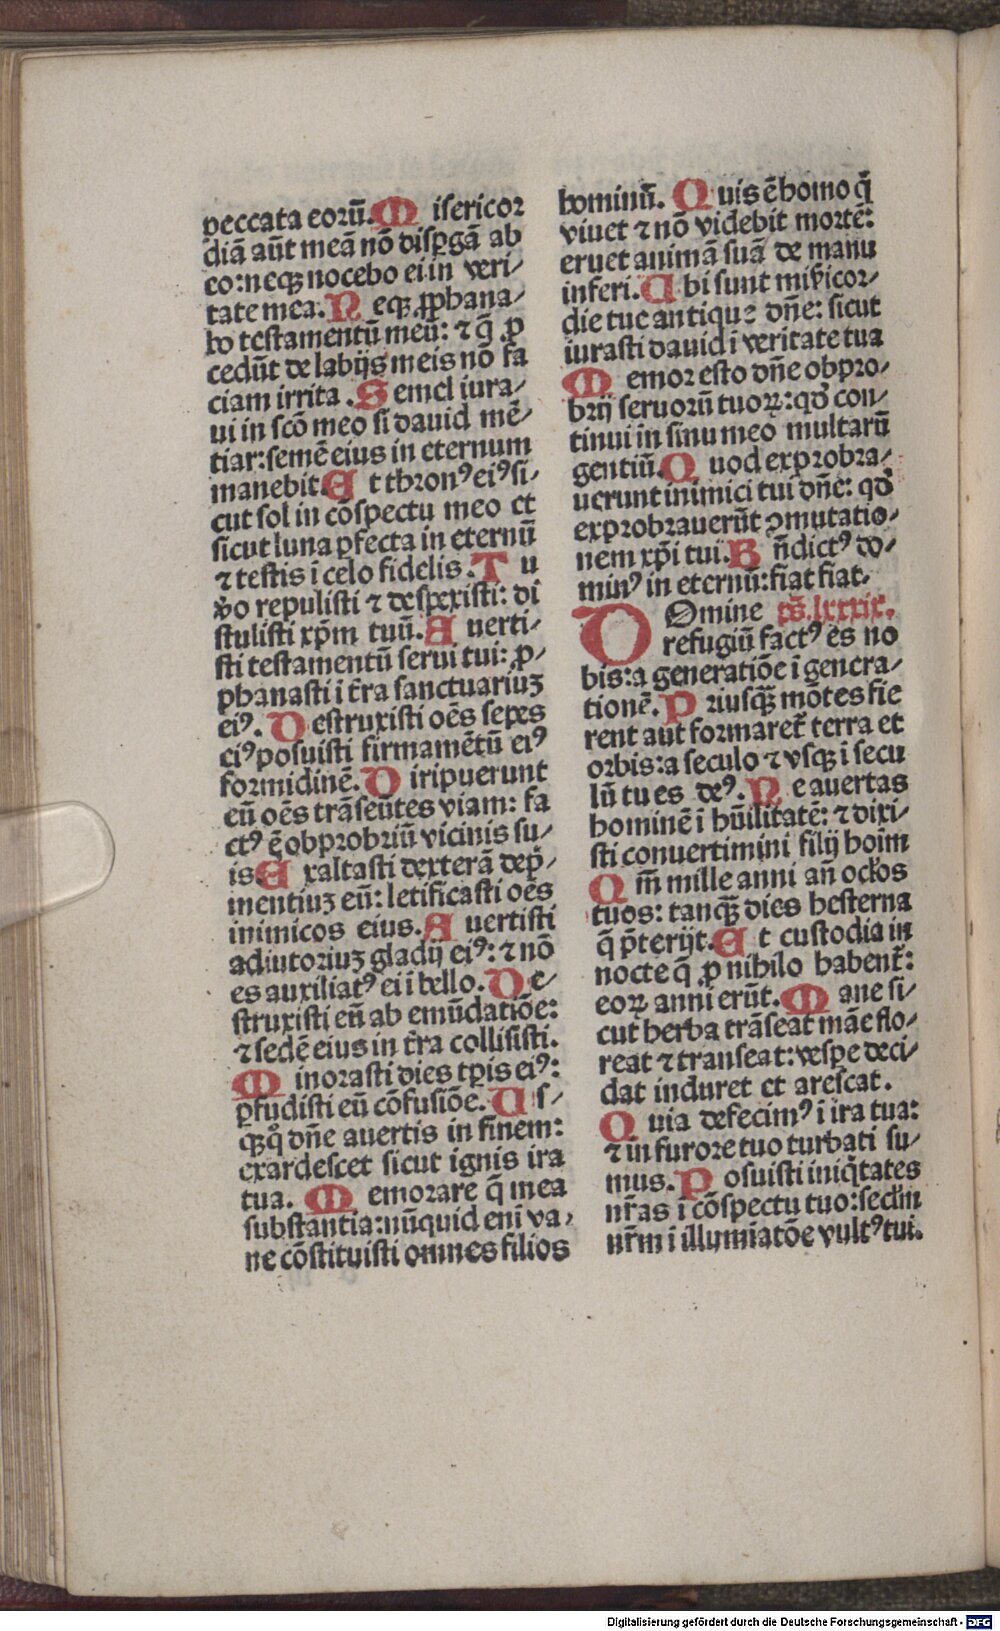 peccata eorū. Misericor
diā aūt meā nō dispgā ab
eo: neqꝫ nocebo ei in veri⸗
tate mea. Neqꝫ ꝓphana⸗
bo testamentū meū: ⁊ q̄ ꝓ
cedūt de labijs meis nō fa
ciam irrita. Semel iura⸗
ui in scō meo si dauid mē⸗
tiar: semē eius in eternum
manebit. Et thronꝰ eiꝰ si⸗
cut sol in cōspectu meo et
sicut luna ꝑfecta in eternū
⁊ testis ī celo fidelis. Tu
v̾o repulisti ⁊ despexisti: di
stulisti xp̄m tuū. Auerti⸗
sti testamentū serui tui: ꝓ⸗
phanasti ī t̄ra sanctuariuꝫ
eiꝰ. Destruxisti oēs sepes
eiꝰ posuisti firmamētū eiꝰ
formidinē. Diripuerunt
eū oēs trāseūtes viam: fa
ctꝰ ē obprobriū vicinis su⸗
is. Exaltasti dexterā dep̄⸗
mentiuꝫ eū: letificasti oēs
inimicos eius. Auertisti
adiutoriuꝫ gladij eiꝰ: ⁊ nō
es auxiliatꝰ ei ī bello. De⸗
struxisti eū ab emūdatiōe:
⁊ sedē eius in t̄ra collisisti.
Minorasti dies tꝑis eiꝰ:
ꝑfudisti eū cōfusiōe. Us⸗
qꝫqͦ dn̄e auertis in finem:
exardescet sicut ignis ira
tua. Memorare q̄ mea
substantia: nūquid enī va⸗
ne cōstituisti omnes filios
hominū. Quis ē homo q̄
viuet ⁊ nō videbit mortē:
eruet animā suā de manu
inferi. Ubi sunt mīsicor⸗
die tue antique dn̄e: sicut
iurasti dauid ī veritate tua
Memor esto dn̄e obpro⸗
brij seruorū tuoꝝ: qd̾ con⸗
tinui in sinu meo multarū
gentiū. Quod exprobra⸗
uerunt inimici tui dn̄e: qd̾
exprobrauerūt ꝯmutatio⸗
nem xp̄i tui. Bn̄dictꝰ do⸗
minꝰ in eternū: fiat fiat.
DOmine ps̄. lxxxix.
refugiū factꝰ es no
bis: a generatiōe ī genera⸗
tionē. Priusqꝫ̄ mōtes fie
rent aut formaret̄ terra et
orbis: a seculo ⁊ vsqꝫ ī secu
lū tu es deꝰ. Ne auertas
hominē ī hūilitatē: ⁊ dixi⸗
sti conuertimini filij hoīm
Qm̄ mille anni an̄ ocl̾os
tuos: tanqꝫ̄ dies hesterna
q̄ p̄terijt. Et custodia in
nocte q̄ ꝓ nihilo habent̄:
eoꝝ anni erūt. Mane si⸗
cut herba trāseat māe flo⸗
reat ⁊ transeat: vespe deci⸗
dat induret et arescat.
Quia defecimꝰ ī ira tua:
⁊ in furore tuo turbati su⸗
mus. Posuisti iniq̄tates
nr̄as ī cōspectu tuo: secl̾m
nr̄m ī illumīatōe vultꝰ tui.
Digitalisierung gefördert durch die Deutsche Forschungsgemeinschaft - DFG